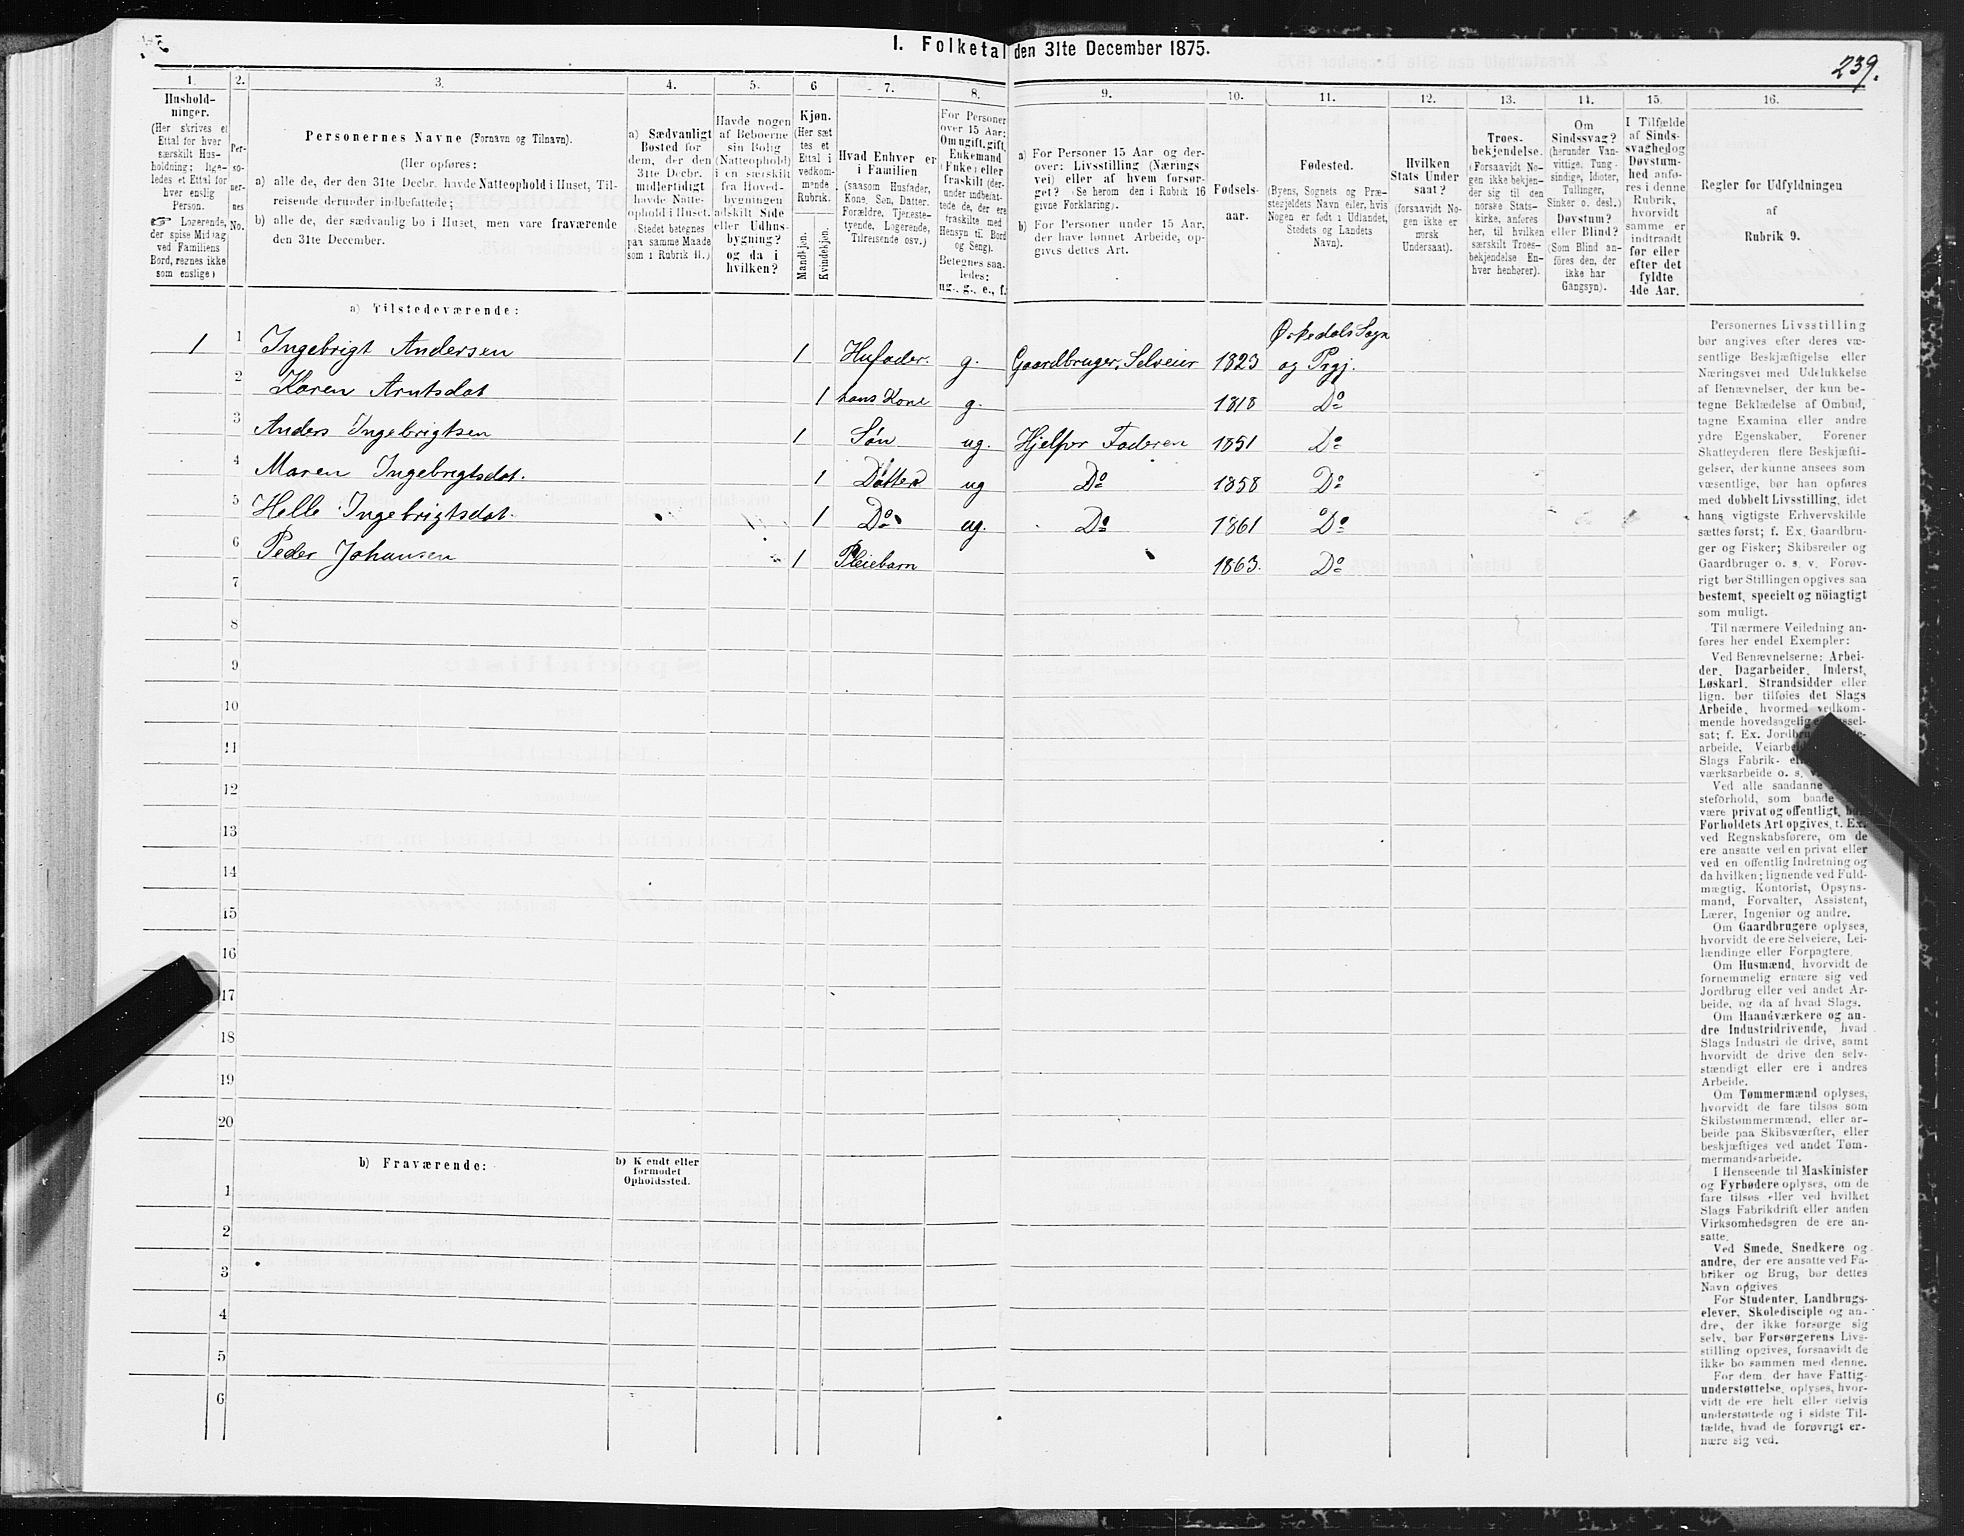 I. Folketal den 31te December 1875.
239.
1. 2. 3. 4. 5. 6 7. 8. 9. 10. 11. 12. 13. 14. 15. 16.
Hushold-
ninger.
(Her skrives et
Ettal for hver
særskilt Hus-
holdning; lige-
ledes et Ettal for
hver enslig
Person.
☞ Logerende,
der spise Middag
ved Familiens
Bord, regnes ikke
som enslige)
Per-
so-
ner-
nes
No.
Personernes Navne (Fornavn og Tilnavn).
(Her opføres:
a) alle de, der den 31te Decbr. havde Natteophold i Huset, Til-
reisende derunder indbefattede;
b) alle de, der sædvanlig bo i Huset, men vare fraværende
den 31te December.
a) Sædvanligt
Bosted for
dem, der den
31te Decbr.
midlertidigt
havde Natte-
ophold i Huset.
(Stedet betegnes
paa samme Maade
som i Rubrik 11.)
Havde nogen
af Beboerne
sin Bolig
(Natteophold)
i en særskilt
fra Hoved-
bygningen
adskilt Side
eller Udhus-
bygning?
og da i
hvilken?
Kjøn.
(Her sæt
tes et
Ettal i
vedkom-
mende
Rubrik.
Mandkjøn.
Kvindekjøn.
Hvad Enhver er
i Familien
(saasom Husfader,
Kone, Søn, Datter,
Forældre, Tjeneste-
tyende, Logerende,
Tilreisende osv.)
For Personer
over 15 Aar:
Om ugift, gift,
Enkemand
(Enke) eller
fraskilt (der-
under indbefat-
tede de, der ere
fraskilte med
Hensyn til Bord
og Seng).
Betegnes saa-
ledes:
ug., g., e., f.
a) For Personer 15 Aar og der-
over: Livsstilling (Nærings-
vei) eller af hvem forsør-
get? (Se herom den i Rubrik 16
givne Forklaring).
b) For Personer under 15 Aar,
der have lønnet Arbeide, op-
gives dettes Art.
Fødsels-
aar.
Fødested.
(Byens, Sognets og Præ-
stegjeldets Navn eller, hvis
Nogen er født i Udlandet,
Stedets og Landets
Navn).
Hvilken
Stats Under
saat?
(forsaavidt No-
gen ikke er
norsk
Undersaat).
Troes-
bekjendelse.
(Forsaavidt No-
gen ikke bekjen-
der sig til den
norske Stats-
kirke, anføres
her, til hvilken
særskilt Troes-
bekjendelse En-
hver henhører).
Om
Sindssvag?
(herunder Van-
vittige, Tung-
sindige, Idioter,
Tullinger,
Sinker o. desl.)
Døvstum?
eller Blind?
(Som Blind an-
føres den, der
ikke har
Gangsyn).
I Tilfælde
af Sinds-
svaghed og
Døvstum-
hed anfø-
res i denne
Rubrik,
hvorvidt
samme er
indtraadt
før eller
efter det
fyldte
4de Aar.
Regler for Udfyldningen
af
Rubrik 9.
a) Tilstedeværende:
1 1 Ingebrigt Andersen 1 Husfader. g. Gaardbruger, Selveier 1823 Ørkedals Sogn og Prgj.
2 Karen Arntsdat 1 hans Kone g. 1818 Do
3 Anders Ingebrigtsen 1 Søn ug. Hjelper Faderen 1851 Do
4 Maren Ingebrigtsdat. 1 Datter ug Do 1858 Do
5 Helle Ingebrigtsdat. 1 Do ug. Do 1861 Do
6 Peder Johansen 1 Pleiebarn 1863. Do
7
8
9
10
11
12
13
14
15
16
17
18
19
20
b) Fraværende:
b) Kjendt eller
formodet
Opholdssted.
1
2
3
4
5
6
Personernes Livsstilling
bør angives efter deres væ-
sentlige Beskjæftigelse eller
Næringsvei med Udelukkelse
af Benævnelser, der kun be-
tegne Beklædelse af Ombud,
tagne Examina eller andre
ydre Egenskaber. Forener
Skatteyderen flere Beskjæfti-
gelser, der kunne ansees som
væsentlige, bør han opføres
med dobbelt Livsstilling, idet
hans vigtigste Erhvervskilde
sættes først; f. Ex. Gaardbru-
ger og Fisker; Skibsreder og
Gaardbruger o. s. v. Forøv-
rigt bør Stillingen opgives saa
bestemt, specielt og nöiagtigt
som muligt.
Til nærmere Veiledning an-
føres her endel Exempler:
Ved Benævnelserne: Arbei-
der, Dagarbeider, Inderst,
Løskarl, Strandsidder eller
lign. bør tilføies det Slags
Arbeide, hvormed vedkom-
mende hovedsagelig
sat; f. Ex.
arbeide,
Slags Fabrik-
værksarbeide o. s.
Ved alle saadanne
steforhold, som baade
være privat og offentligt, bør
Forholdets Art opgives, t. Ex.
ved Regnskabsførere, om de
ere ansatte ved en privat eller
ved en offentlig Indretning og
da hvilken; lignende ved Fuld-
mægtig, Kontorist, Opsyns-
mand, Forvalter, Assistent,
Lærer, Ingeniør og andre.
Om Gaardbrugere oplyses,
hvorvidt de ere Selveiere, Lei-
lændinge eller Forpagtere.
Om Husmænd, hvorvidt de
fornemmelig ernære sig ved
Jordbrug eller ved andet Ar-
beide, og da af hvad Slags.
Om Haandværkere og an-
dre Industridrivende, hvad
Slags Industri de drive, samt
hvorvidt de drive den selv-
stændigt eller ere i andres
Arbeide.
Om Tømmermænd oplyses,
hvorvidt de fare tilsøs som
Skibstømmermænd, eller ar-
beide paa Skibsværfter, eller
beskjæftiges ved andet Tøm-
mermandsarbeide.
I Henseende til Maskinister
og Fyrbødere oplyses, om de
fare tilsøs eller ved hvilket
Slags Fabrikdrift eller anden
Virksomhedsgren de ere an-
satte.
Ved Smede, Snedkere og
andre, der ere ansatte ved Fa-
briker og Brug, bør dettes
Navn opgives
For Studenter, Landbrugs-
elever, Skoledisciple og an-
dre, der ikke forsørge sig
selv, bør Forsørgerens Livs-
stilling opgives, forsaavidt de
ikke bo sammen med denne.
For dem, der have Fattig-
understøttelse, oplyses, hvor-
vidt de ere helt eller delvis
understøttede og i sidste Til-
fælde, hvad de forøvrigt er-
nære sig ved.